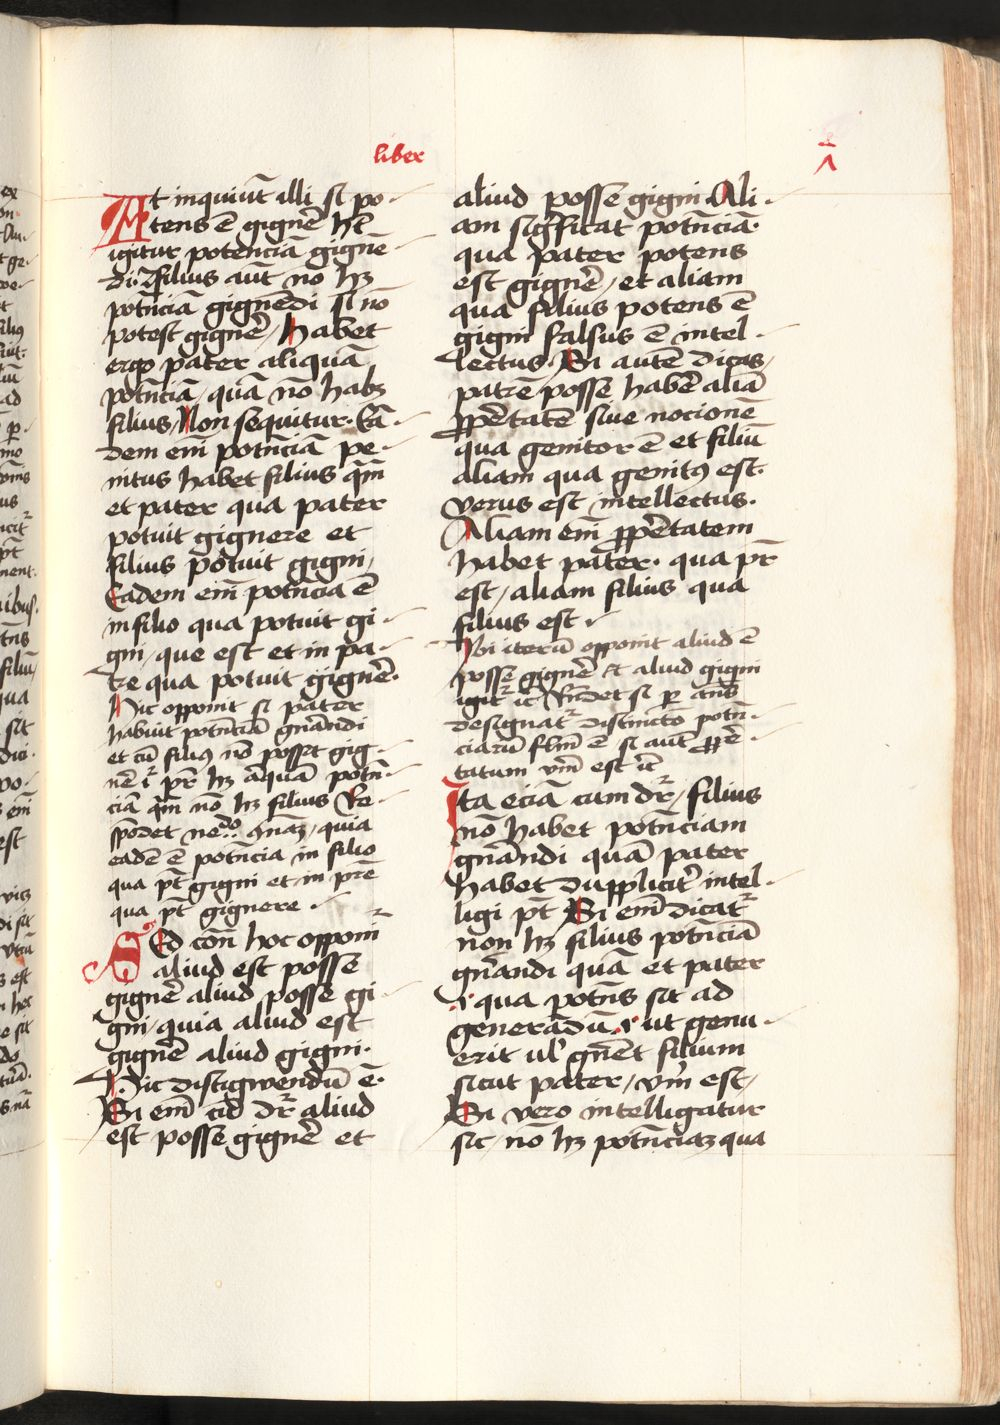 liber
1
At inquiūt illi si po-
tens ē gignē̄ hēt
igitur potenciā gignē-
di. Filius aūt nō hꝫ
potn̄ciā gignēdi si nō
potest gignē̄ / Habet
ergo pater aliquā
potn̄ciā / quā nō habꝫ
filius / Non sequitur. Eā-
dem em̄ potn̄ciā pe-
nitus habet filius qm̄
et pater qua pater
potuit gignere et
filius potuit gigni /
Eadem em̄ potn̄cia ē
in filio qua potuit gi-
gni / que est et in pa-
tre qua potuit gignē̄.
Hic oppoīt si pater
habuit potn̄ciā gn̄andi
et cū filiꝰ nō posset gig-
nē̄ pr̄ hꝫ aliquā potn̄-
ciā qm̄ nō hꝫ filius Re-
spōdet quia
eadē ē potn̄cia in filio
qua pt̄ gigni et in prē
qua pt̄ gignere .
Sed con̄ hoc opponit᷑
aliud est posse
gignē̄ aliud posse gi-
gni / quia aliud est
gignē̄ aliud gigni.
Hic distigwendū ē.
Si em̄ cū dr᷑ aliud
est posse gignē̄ et
aliud posse gigni Ali-
am sigficat potn̄ciā.
qua pater potens
est gignē̄ / et aliam
qua filius potens ē
gigni falsus ē intel-
lectus / Si autē dicas /
patrē posse habē̄ aliā
ꝓpetatē siue nocionē
qua genitor ē et filiū
aliam qua genitꝰ est.
verus est intellectus.
Aliam em̄ ꝓpetatem
habet pater. qua pr̄
est / aliam filius qua
filius est .
Hi iterū oppoīt aliud ē
posse gignē̄ & aliud gigni
igit᷑ si per
designat᷑ distinctō potn̄-
ciarū flm̄ ē si aūt ꝓpe-
tatum vm̄ est
Ita eciā cum dr᷑ / filius
nō habet potn̄ciam
gn̄andi quā pater
habet duppliciter intel-
ligi pt̄ Si em̄ dicat᷑
non hꝫ filius potn̄ciā
gn̄andi quā et pater
.i. qua potn̄s sit ad
generādū .i. ut genu-
erit ul' gn̄et filium
sicut pater / vm̄ est /
Si vero intelligatur
sic / nō hꝫ potn̄ciaꝫ qua